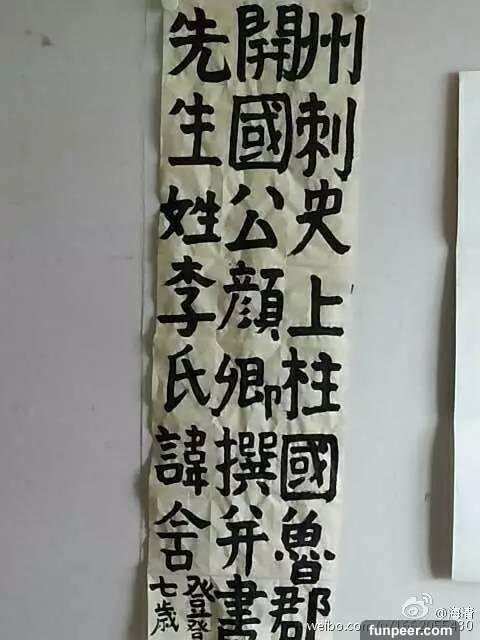 州刺史上柱國魯郡
開國公顏卿撰并書
先生姓李氏諱舍
登登
七歲
funpeer.com